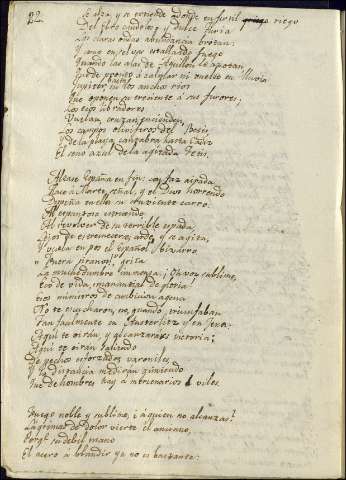 82.
se alza y se extiende adonde en fertil riego
Del alto
y dulce furia
Las claras ondas abundancia brotan:
Y como en el
estallando fuego
Quando las alas de Aquilon le azotan,
Pardo
pronto á calmar ni vuelto en lluvia
Jupiter,
hasta los anchos rios
Que oponen su creciente á sus furores;
Los ecos libradores
Vuelan, cruzan, encienden,
Los campos olivíferos del Betis,
Y de la playa Cantabra hasta Cadiz
El seno azul de la agitada Tetis.
Alzase España en fin: con faz airada
Hace á Marte señal, y el Dios horrendo
Despeña en ella su cruxiente carro.
Al espantoso estruendo,
Al revolver de su terrible espada,
Lejos de estremecerse, arde, y se agita,
Y vuela en pos el Español bizarro
"Fuera tiranos", grita
La muchedumbre inmensa. ¡Oh voz sublime,
Eco de vida, manantial de gloria!
Esos ministros de ambicion agena
No te escucharon, no, quando triunfaban
Tan facilmente en Austerlitz y en Jena.
Aqui te oirán, y alcanzarás victoria;
Aqui te oirán saliendo
De pechos esforzados, varoniles
Y la distancia medirán gimiendo
Que de hombres hay á mercenarios viles.
Fuego noble y sublime, ¿á quien no alcanzas?
Lagrimas de dolor vierte el anciano,
Porqe. su debil mano
El acero á blandir ya no es bastante: